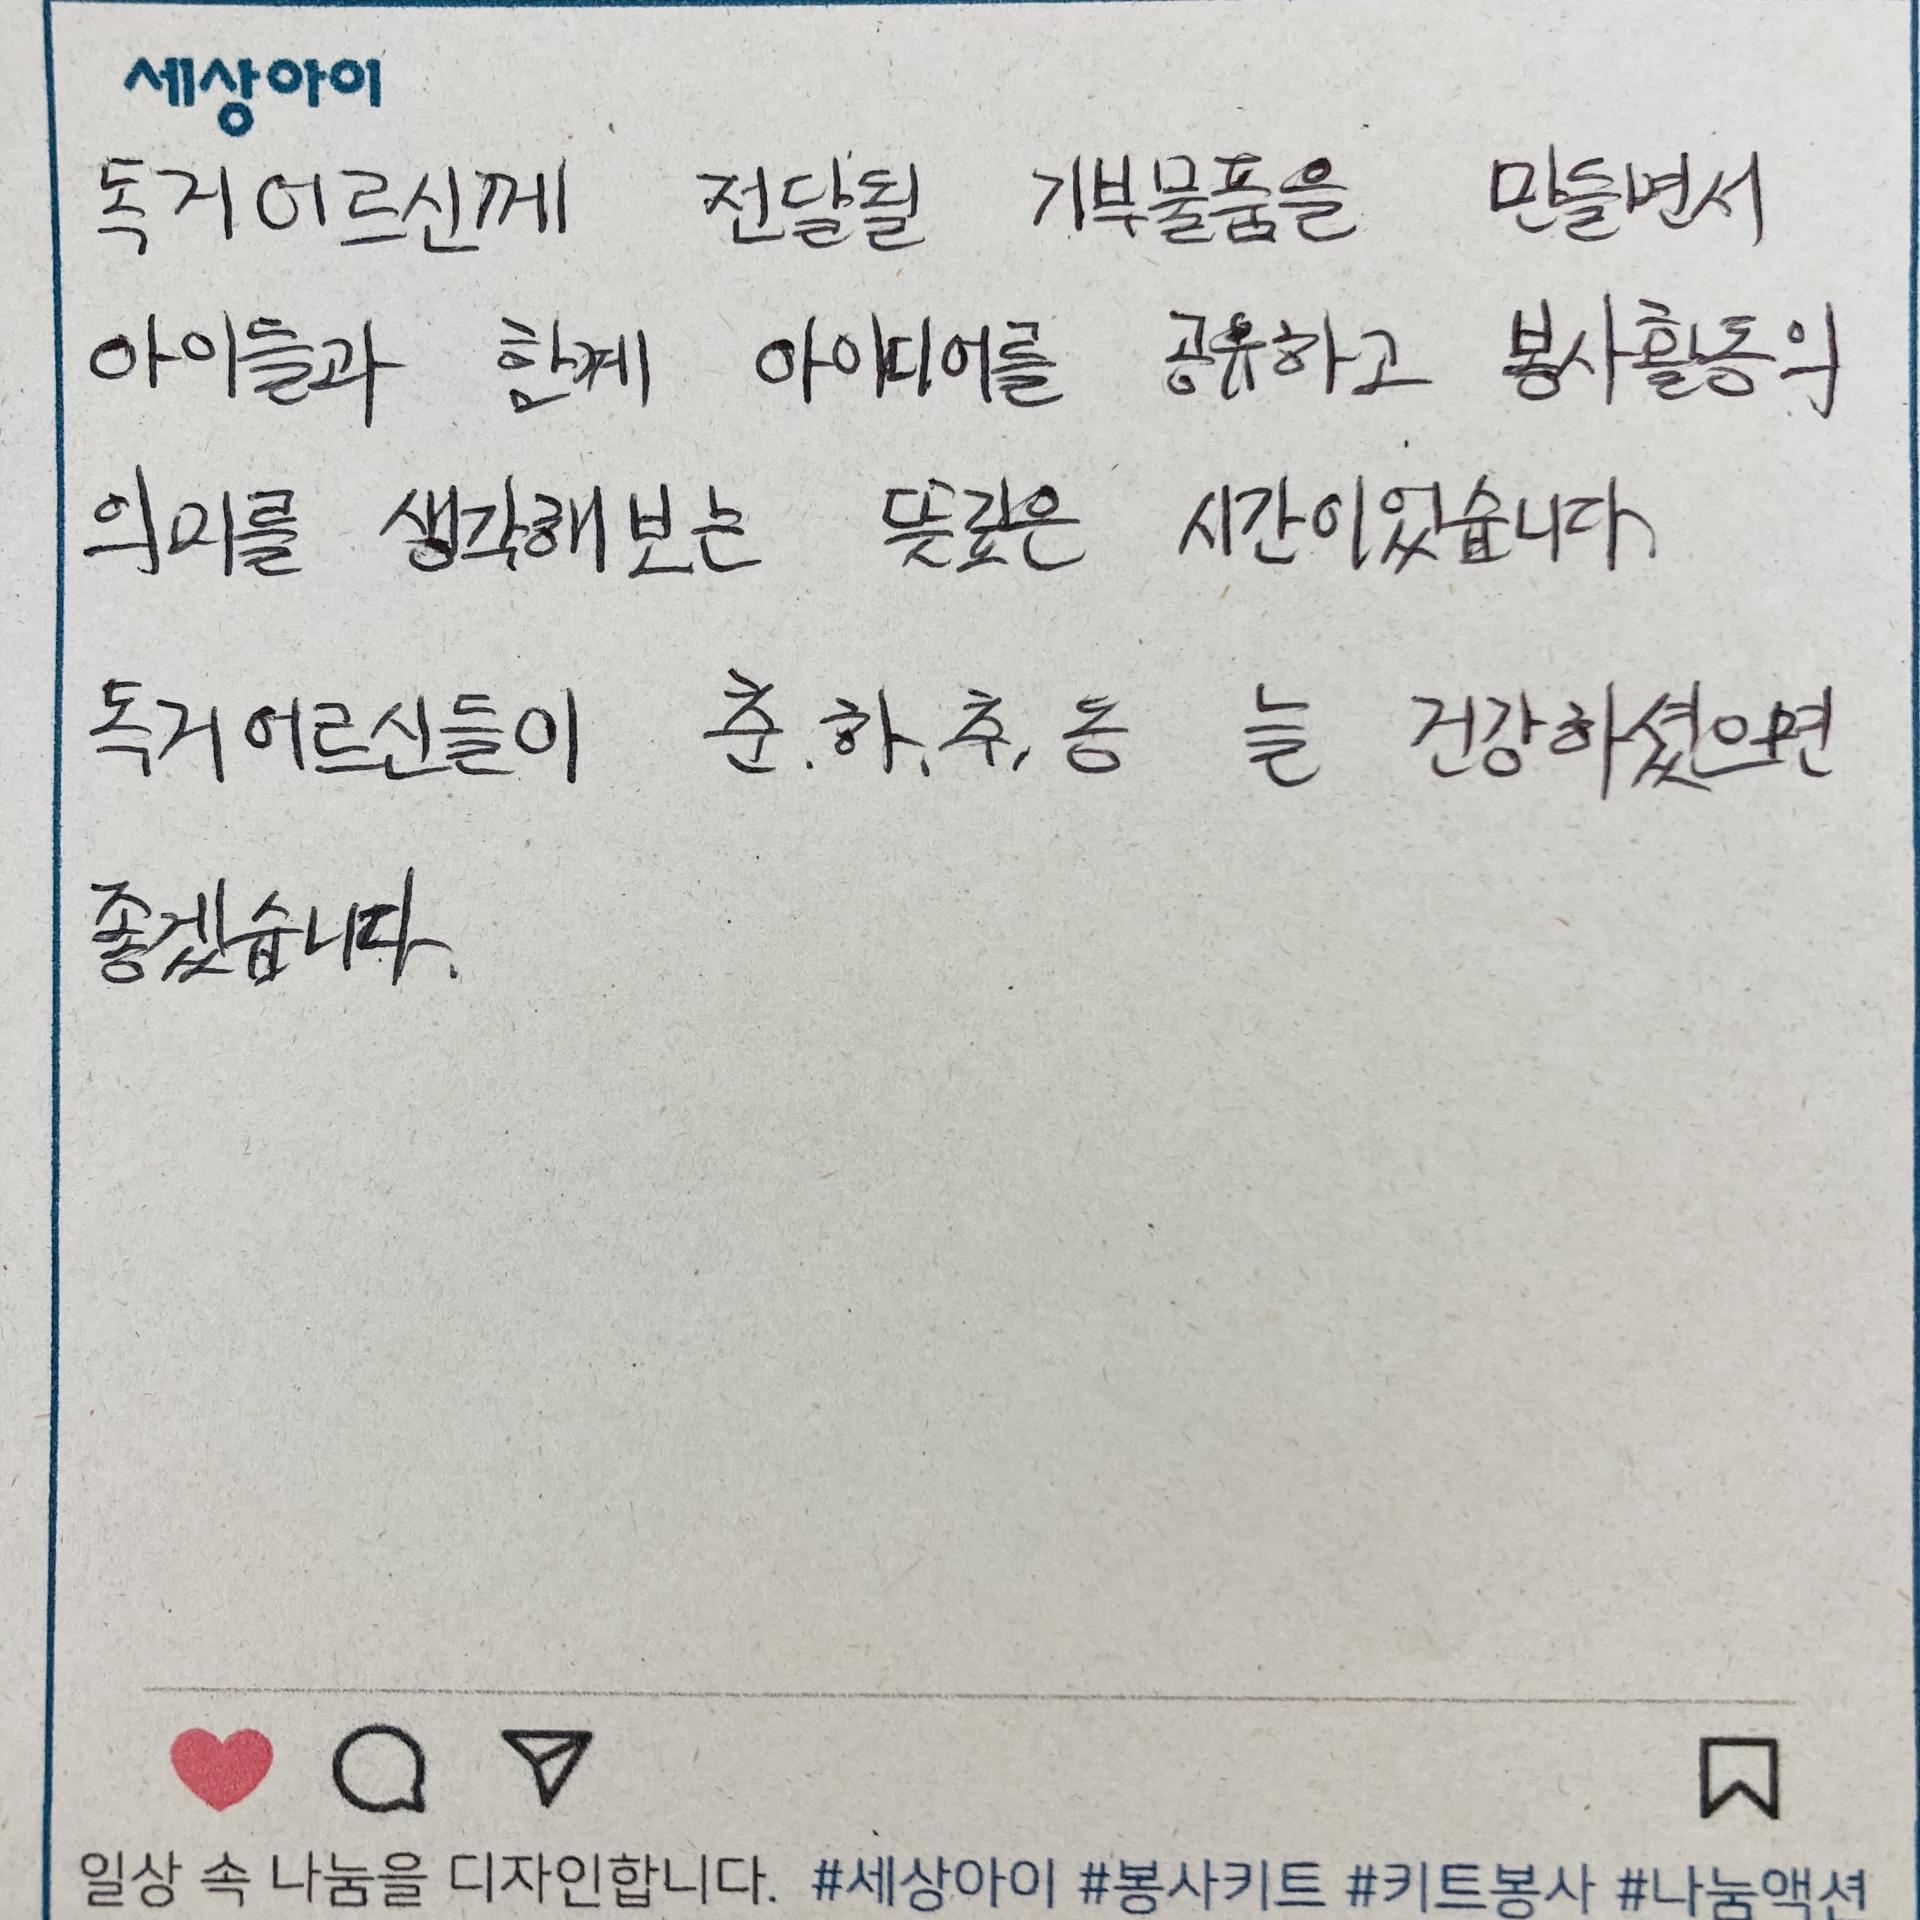 세상아이
독거어르신께 전달될 기부물품을 만들면서
아이들과 함께 아이디어를 공유하고 봉사활동의
의미를 생각해보는 뜻깊은 시간이었습니다.
독거어르신들이 춘.하.추,동 늘 건강하셨으면
좋겠습니다.
일상 속 나눔을 디자인합니다. #세상아이 #봉사키트 #키트봉사 #나눔액션